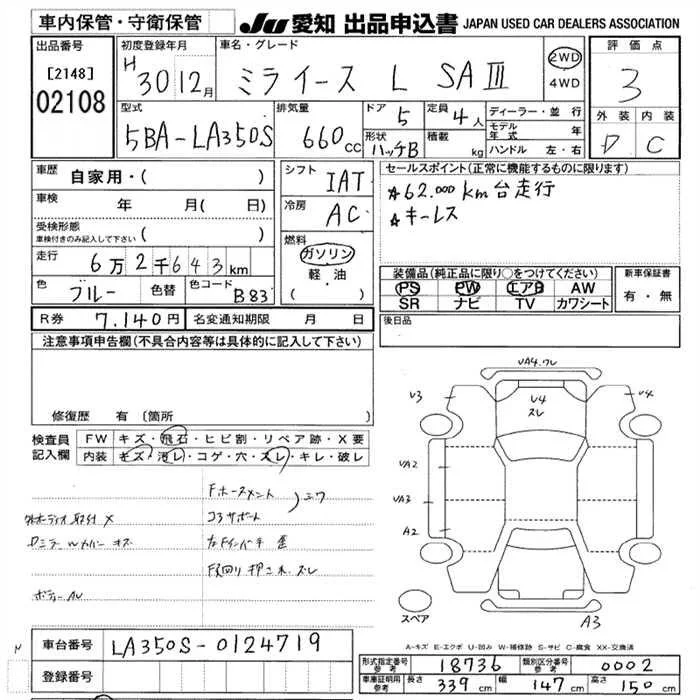 車内保管・守衛保管
JU 愛知 出品申込書 JAPAN USED CAR DEALERS ASSOCIATION
出品番号
[2148]
02108
初度登録年月
H30 12月
車名・グレード
ミライース L SAⅢ
2WD
4WD
評価点
3
型式
5BA-LA350S
排気量
660cc
ドア
5
定員
4人
形状
ハッチB
積載
kg
ディーラー・並行
モデル年式 年
ハンドル 左・右
外装 内装
D C
車歴
自家用・( )
車検
年 月( 日)
受検形態
車検付きのみ記入して下さい
( )
走行
6万2千643km
色
ブルー
色替
色コード
B83
シフト
IAT
冷房
AC
燃料
ガソリン
軽・油
( ・ )
セールスポイント(正常に機能するものに限ります)
☆62.000km台走行
☆キーレス
装備品(純正品に限り○をつけてください)
PS PW エアB AW
SR ナビ TV カワシート
新車保証書
有・無
R券
7.140円
名変通知期限 月 日
後日品
注意事項申告欄(不具合内容等は具体的に記入して下さい)
修復歴 有 〔箇所
検査員記入欄
FW キズ・飛石・ヒビ割・リペア跡・X要
内装 キズ・汚レ・コゲ・穴・スレ・キレ・破レ
コアサポート
VA4.ワレ
V3
V4
スレ
V4
VA2
VA3
A2
A3
スペア
A-キズ E-エクボ U-凹み W-補修跡 S-サビ C-腐食 XX-交換済
車台番号
LA350S-0124719
登録番号
形式指定番号
参考
18736
類別区分番号
参考
0002
車庫証明用
参考
長さ 339cm
幅 147cm
高さ 150cm